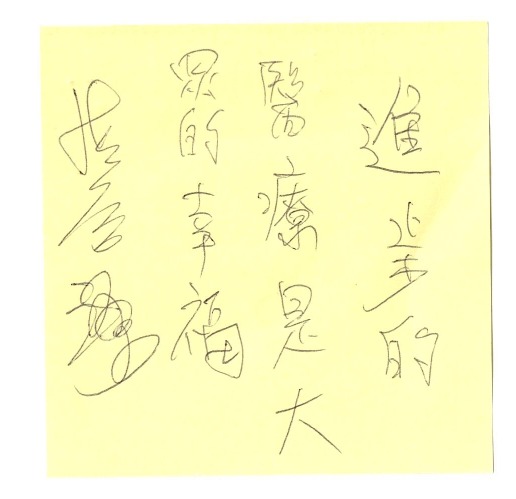 進步的
醫療是大
眾的幸福